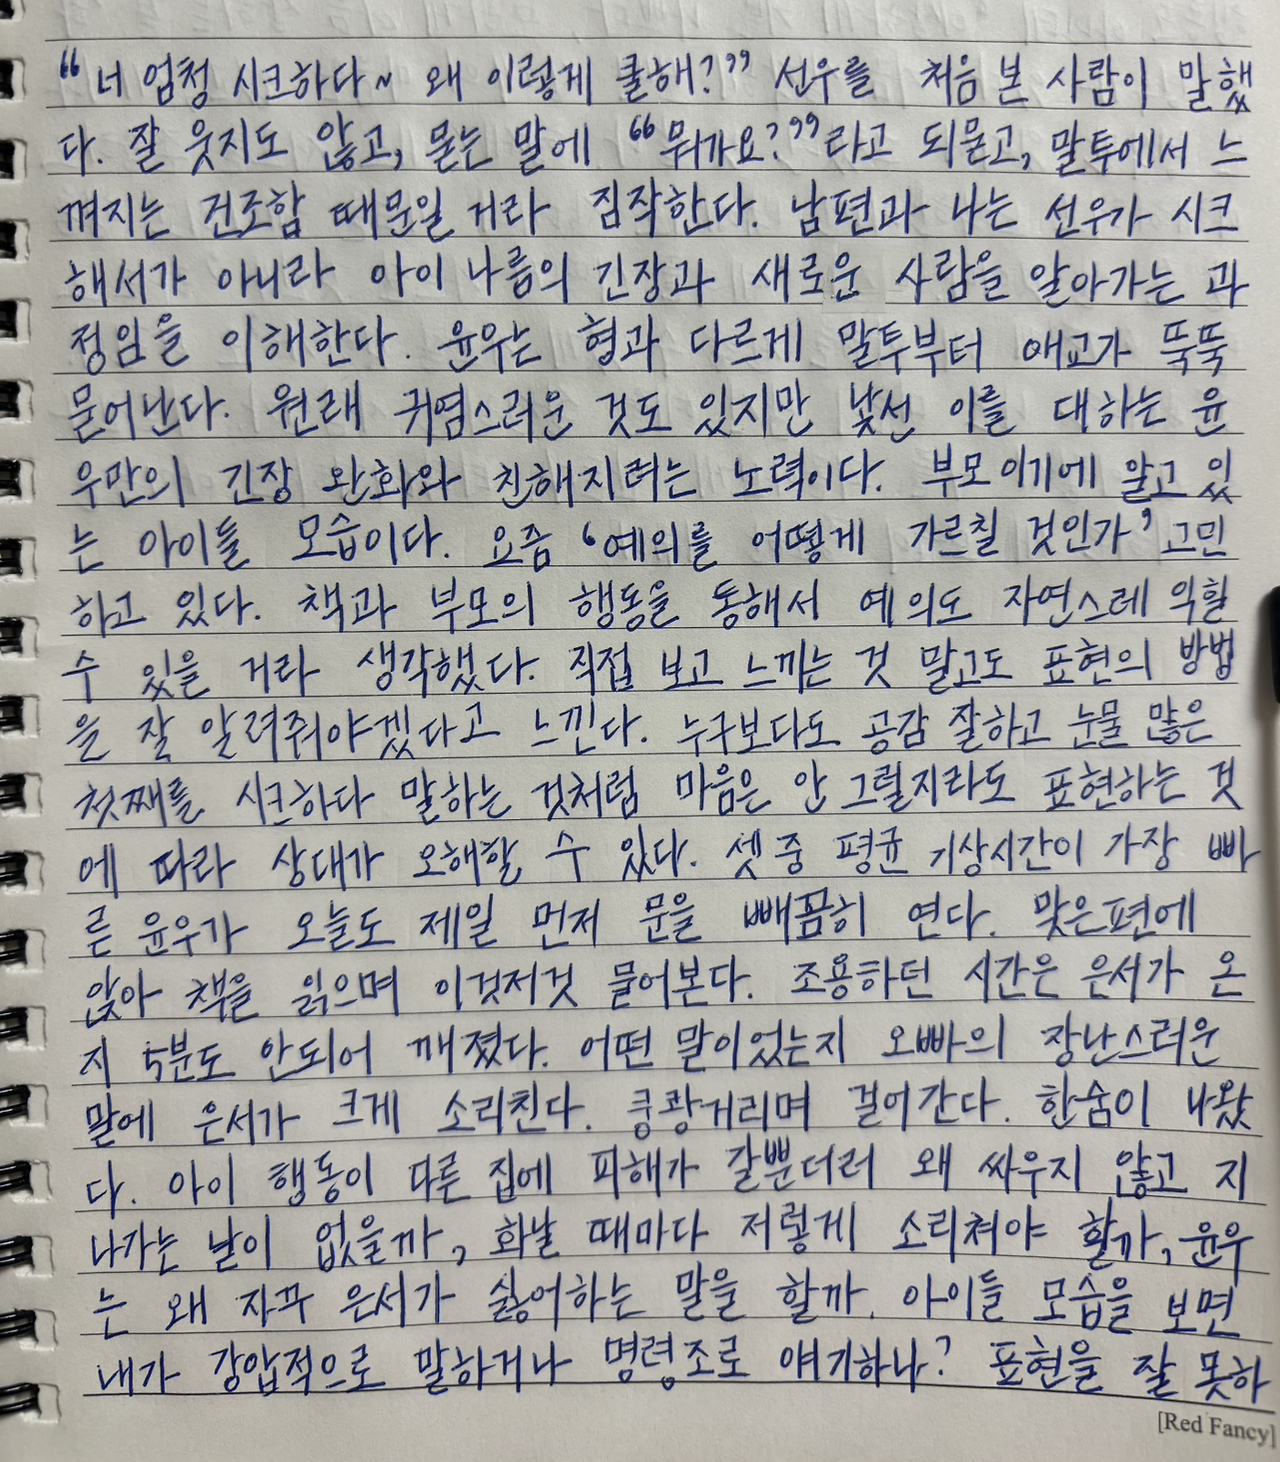 “너 엄청 시크하다~ 왜 이렇게 쿨해?” 선우를 처음 본 사람이 말했
다. 잘 웃지도 않고, 묻는 말에 “뭐가요?”라고 되묻고, 말투에서 느
껴지는 건조함 때문일 거라 짐작한다. 남편과 나는 선우가 시크
해서가 아니라 아이 나름의 긴장과 새로운 사람을 알아가는 과
정임을 이해한다. 윤우는 형과 다르게 말투부터 애교가 뚝뚝
묻어난다. 원래 귀염스러운 것도 있지만 낯선 이를 대하는 윤
우만의 긴장 완화와 친해지려는 노력이다. 부모이기에 알고 있
는 아이들 모습이다. 요즘 ‘예의를 어떻게 가르칠 것인가’ 고민
하고 있다. 책과 부모의 행동을 통해서 예의도 자연스레 익힐
수 있을 거라 생각했다. 직접 보고 느끼는 것 말고도 표현의 방법
을 잘 알려줘야겠다고 느낀다. 누구보다도 공감 잘하고 눈물 많은
첫째를 시크하다 말하는 것처럼 마음은 안 그럴지라도 표현하는 것
에 따라 상대가 오해할 수 있다. 셋 중 평균 기상시간이 가장 빠
른 윤우가 오늘도 제일 먼저 문을 빼꼼히 연다. 맞은편에
앉아 책을 읽으며 이것저것 물어본다. 조용하던 시간은 은서가 온
지 5분도 안되어 깨졌다. 어떤 말이었는지 오빠의 장난스러운
말에 은서가 크게 소리친다. 쿵쾅거리며 걸어간다. 한숨이 나왔
다. 아이 행동이 다른 집에 피해가 갈뿐더러 왜 싸우지 않고 지
나가는 날이 없을까, 화날 때마다 저렇게 소리쳐야 할까, 윤우
는 왜 자꾸 은서가 싫어하는 말을 할까. 아이들 모습을 보면
내가 강압적으로 말하거나 명령조로 얘기하나? 표현을 잘 못하
[Red Fancy]